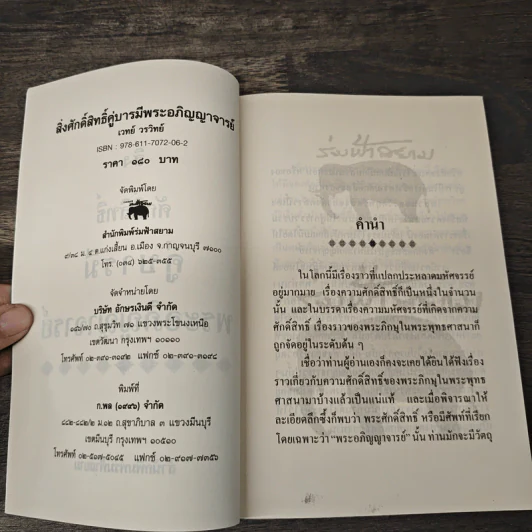 สิ่งศักดิ์สิทธิ์คู่บารมีพระอภิญญาจารย์
เวทย์ วรวิทย์
ISBN : 978-611-7072-06-2
ราคา ๑๘๐ บาท
จัดพิมพ์โดย
สำนักพิมพ์ร่มฟ้าสยาม
๔/๙๔ ม. ๔ ต.แก่งเสี้ยน อ.เมือง จ.กาญจนบุรี ๗๑๐๐๐
โทร. (๐๓๔) ๖๒๕-๓๕๕
จัดจำหน่ายโดย
บริษัท อักษรเงินดี จำกัด
ถ.สุขุมวิท ๗๑ แขวงพระโขนงเหนือ
เขตวัฒนา กรุงเทพฯ ๑๐๑๑๐
โทรศัพท์ ๐๒-๓๙๑-๓๑๘๒ แฟกซ์ ๐๒-๓๙๑-๓๑๘๔
พิมพ์ที่
ก.พล (๑๙๙๖) จำกัด
๔๔๒-๔๔๒/๒ ม.๑๒ ถ.สุขาภิบาล ๓ แขวงมีนบุรี
เขตมีนบุรี กรุงเทพฯ ๑๐๕๑๐
โทรศัพท์ ๐๒-๕๑๗-๕๐๔๕ แฟกซ์ ๐๒-๙๑๗-๗๓๕๖
ร่มฟ้าสยาม
คำนำ
ในโลกนี้มีเรื่องราวที่แปลกประหลาดมหัศจรรย์
อยู่มากมาย เรื่องความศักดิ์สิทธิ์ก็เป็นหนึ่งในจำนวน
นั้น และในบรรดาเรื่องความมหัศจรรย์ที่เกิดจากความ
ศักดิ์สิทธิ์ เรื่องราวของพระภิกษุในพระพุทธศาสนาก็
ถูกจัดอยู่ในระดับต้น ๆ
เชื่อว่าท่านผู้อ่านเองก็คงจะเคยได้ยินได้ฟังเรื่อง
ราวเกี่ยวกับความศักดิ์สิทธิ์ของพระภิกษุในพระพุทธ
ศาสนามาบ้างแล้วเป็นแน่แท้ และเมื่อพิจารณาให้
ละเอียดลึกซึ้งก็พบว่า พระศักดิ์สิทธิ์ หรือมีศัพท์ที่เรียก
โดยเฉพาะว่า “พระอภิญญาจารย์” นั้น ท่านมักจะมีวัตถุ